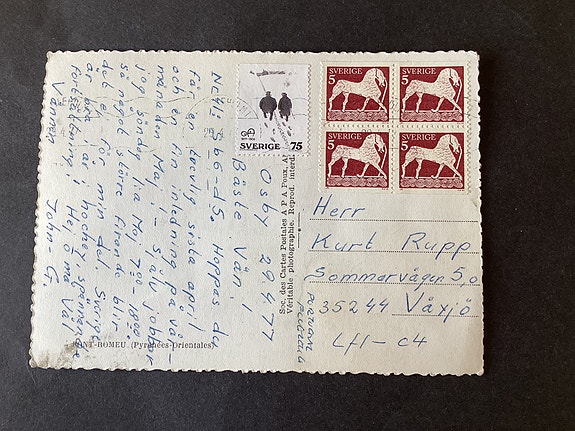 Osby 29.4.77
Bäste Vän!
Hoppas du
får en trevlig sista april
och en fin inledning på vå-
månaden Maj! – Själv jobbar
jag söndag 1:a Maj 7:00 18:00
så något större firande blir
det ej för min del. Sverige
är bra i hockey, spännande
fortsättning! Hej å må väl
Vännen John G.
FONT-ROMEU (Pyrénées-Orientales)
Soc. des Cartes Postales A P A Poux, Al
Véritable photographie. Reprod. interd.
SVERIGE 75
SVERIGE 5
SVERIGE 5
SVERIGE 5
SVERIGE 5
Herr
Kurt Rupp
Sommarvägen 5,0
35244 Växjö
Lf1-c4